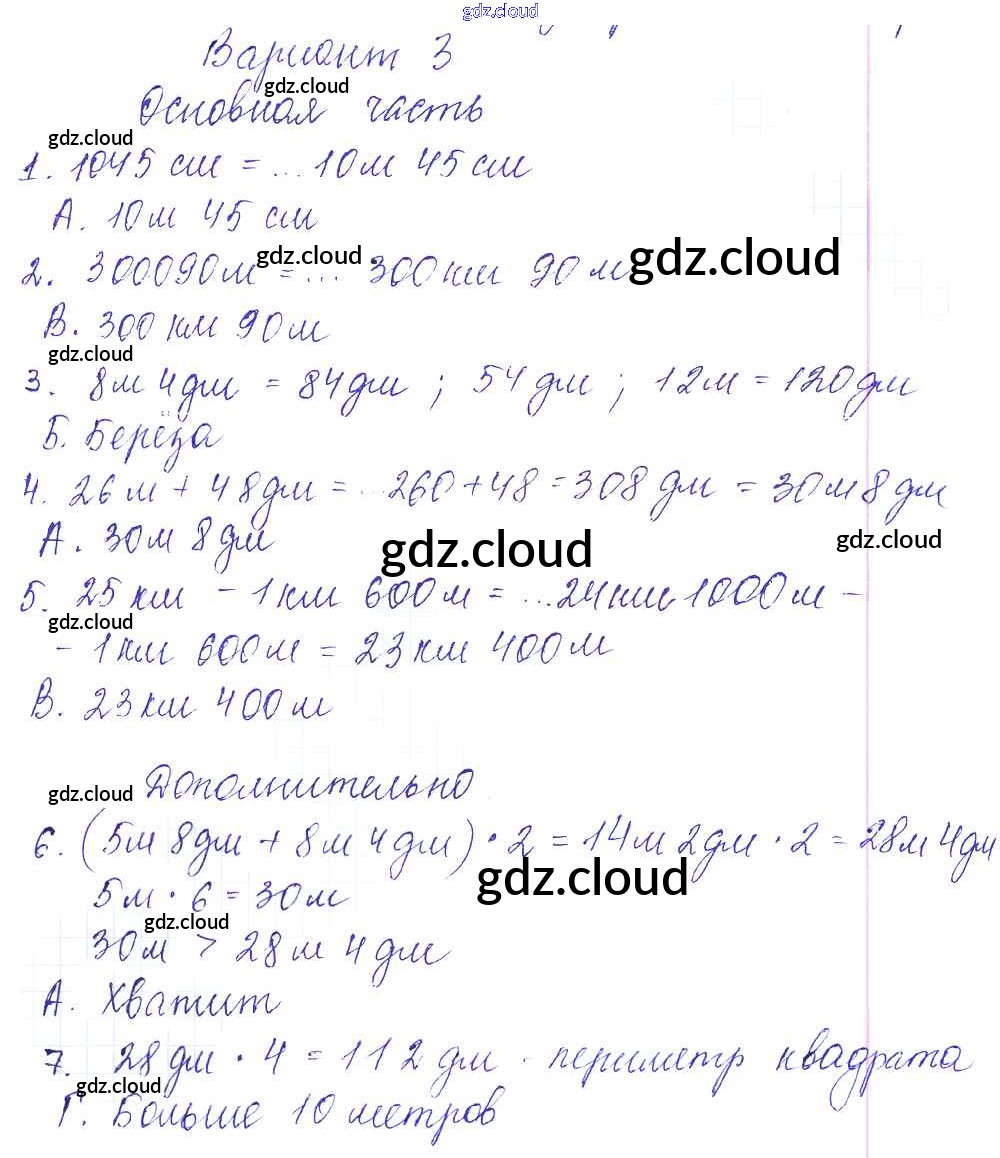 gdz.cloud
Вариант 3
gdz.cloud
Основная часть
gdz.cloud
1. 1045 см = ... 10 м 45 см
А. 10 м 45 см
gdz.cloud
gdz.cloud
2. 300090 м = ... 300 км 90 м
В. 300 км 90 м
gdz.cloud
3. 8 м 4 дм = 84 дм ; 54 дм ; 12 м = 120 дм
Б. Берёза
4. 26 м + 48 дм = ... 260 + 48 = 308 дм = 30 м 8 дм
А. 30 м 8 дм
gdz.cloud
gdz.cloud
5. 25 км - 1 км 600 м = ... 24 км 1000 м -
gdz.cloud
- 1 км 600 м = 23 км 400 м
В. 23 км 400 м
gdz.cloud
Дополнительно
6. (5 м 8 дм + 8 м 4 дм) · 2 = 14 м 2 дм · 2 = 28 м 4 дм
gdz.cloud
5 м · 6 = 30 м
gdz.cloud
30 м > 28 м 4 дм
А. Хватит
7. 28 дм · 4 = 112 дм - периметр квадрата
gdz.cloud
Г. Больше 10 метров